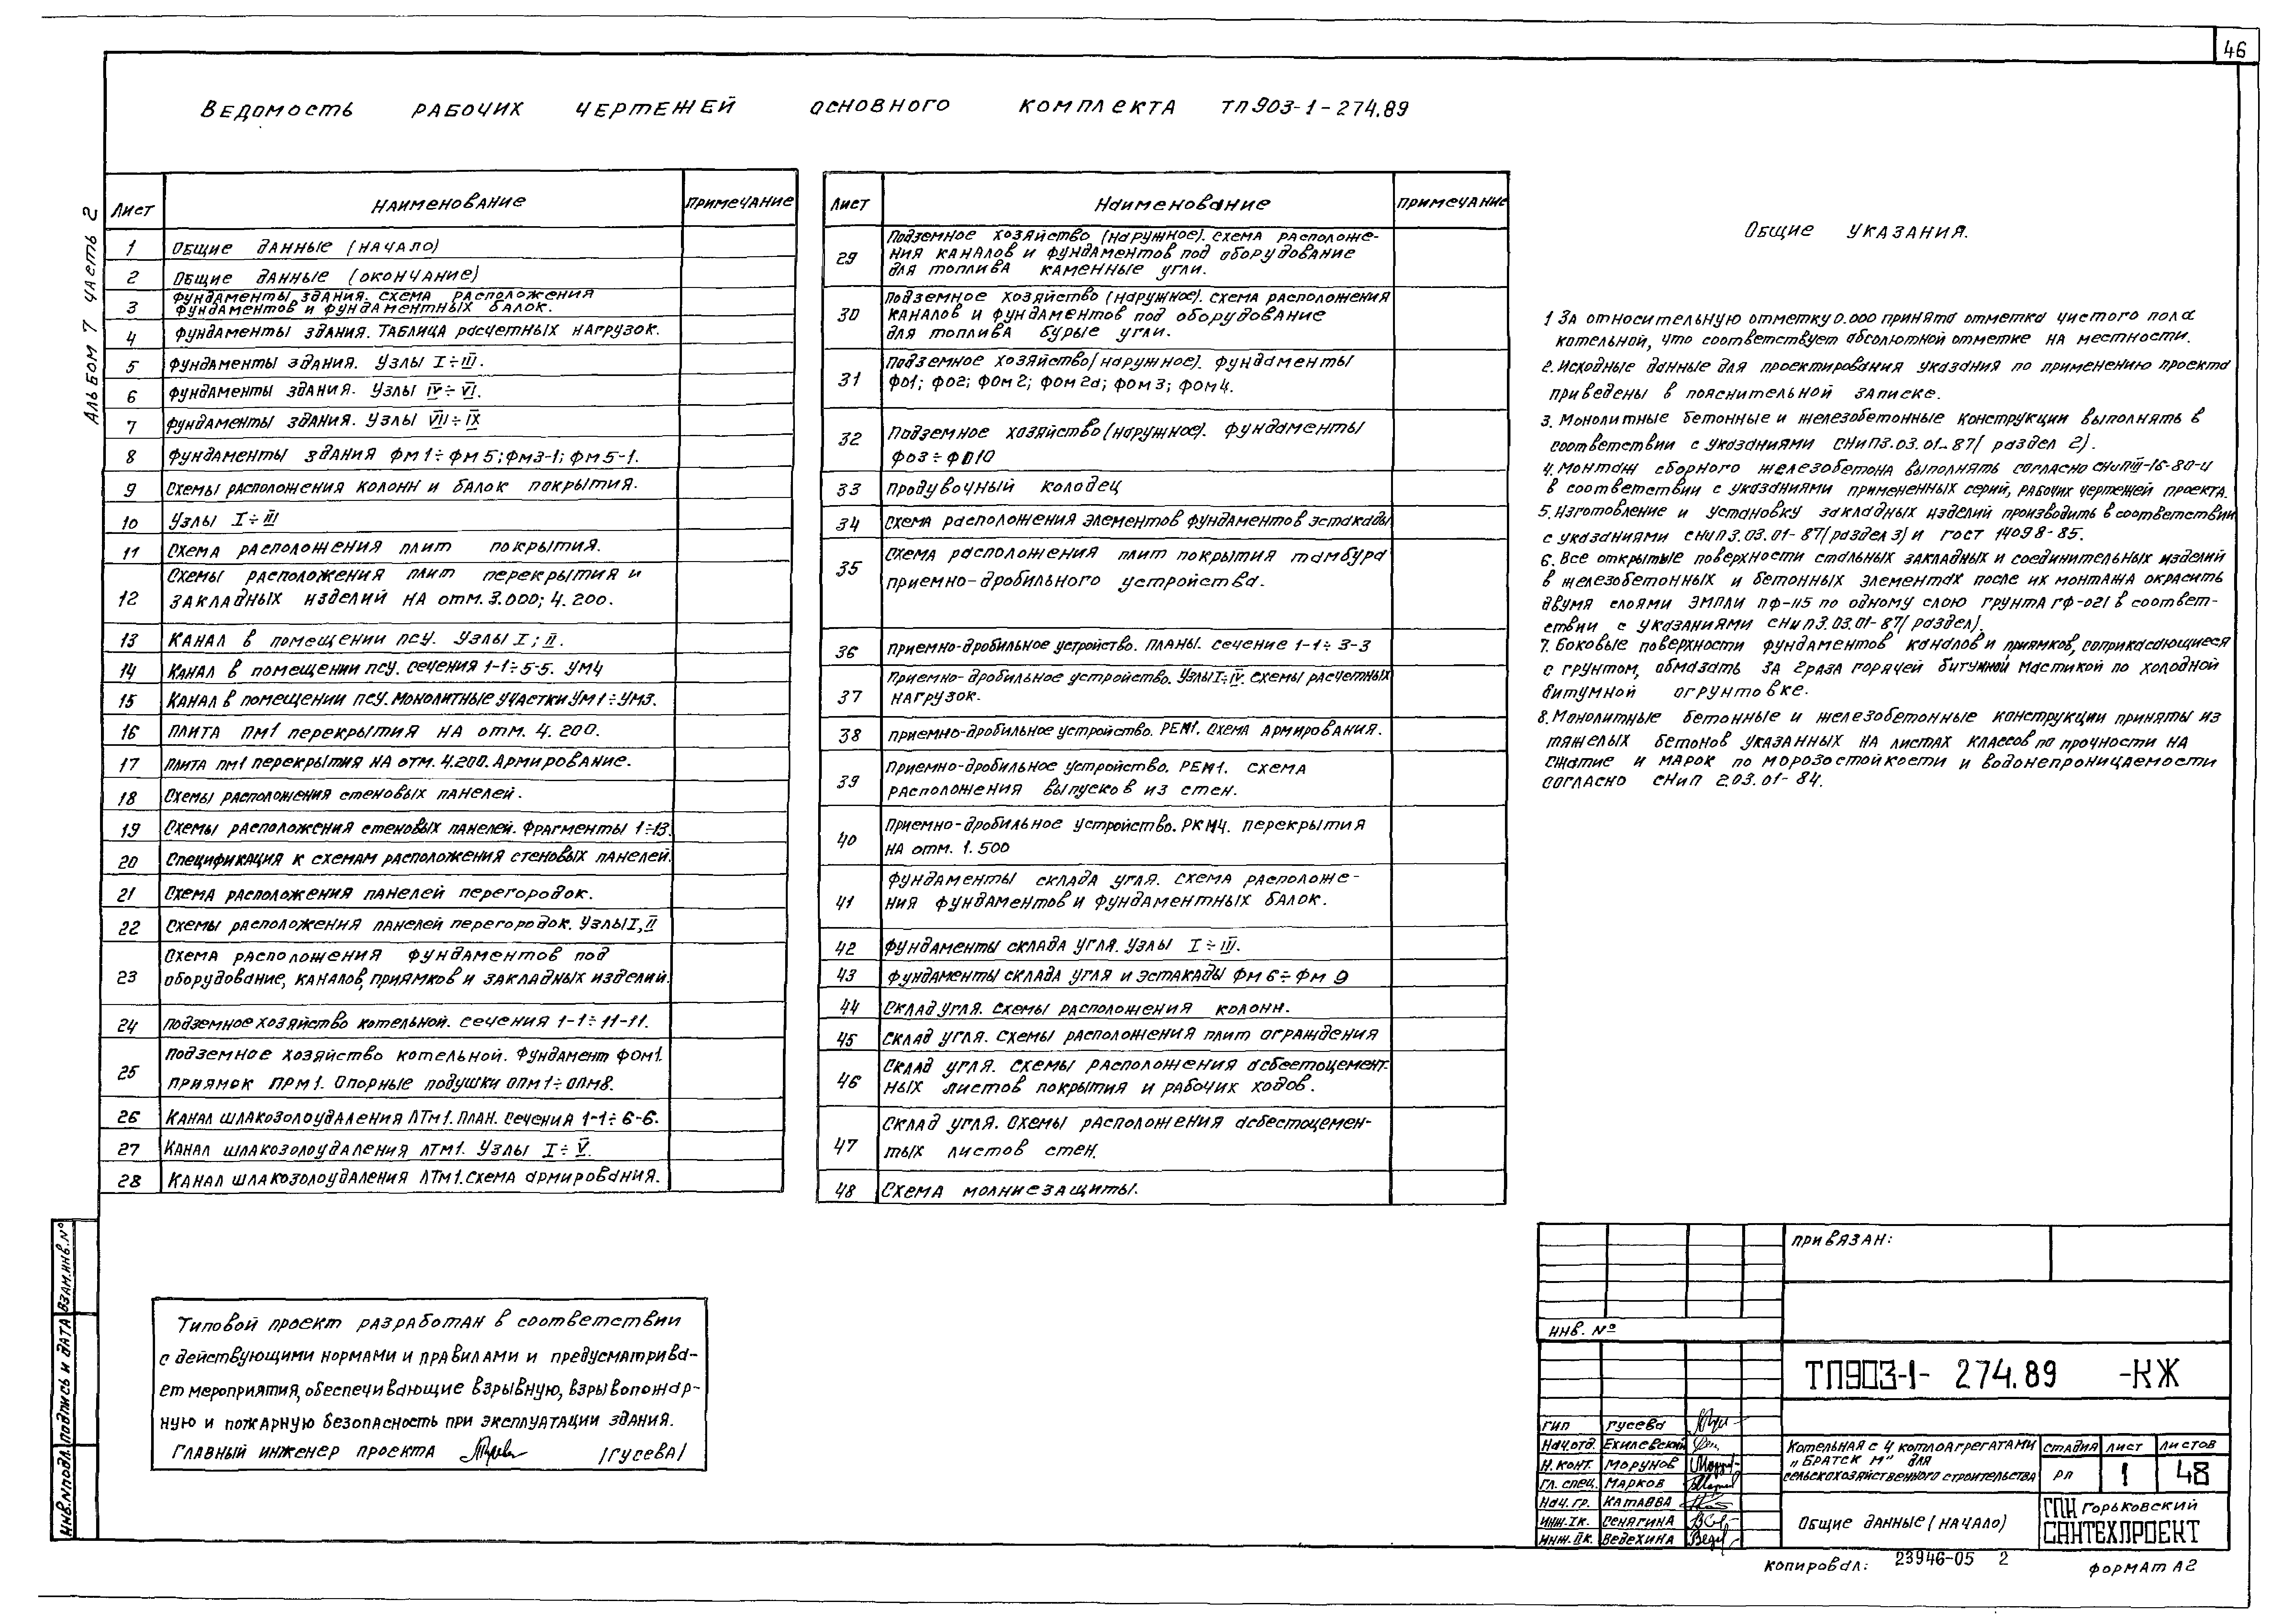 46
Ведомость рабочих чертежей основного комплекта ТП903-1-274.89
Альбом 7 часть 2
Лист Наименование Примечание
1 Общие данные (начало)
2 Общие данные (окончание)
3 Фундаменты здания. Схема расположения
фундаментов и фундаментных балок.
4 Фундаменты здания. Таблица расчетных нагрузок.
5 Фундаменты здания. Узлы I÷III.
6 Фундаменты здания. Узлы IV÷VI.
7 Фундаменты здания. Узлы VII÷IX
8 Фундаменты здания ФМ1÷ФМ5; ФМ3-1; ФМ5-1.
9 Схемы расположения колонн и балок покрытия.
10 Узлы I÷III
11 Схема расположения плит покрытия.
12 Схемы расположения плит перекрытия и
закладных изделий на отм. 3.000; 4.200.
13 Канал в помещении ПСУ. Узлы I; II.
14 Канал в помещении ПСУ. Сечения 1-1÷5-5. УМ4
15 Канал в помещении ПСУ. Монолитные участки УМ1÷УМ3.
16 Плита ПМ1 перекрытия на отм. 4.200.
17 Плита ПМ1 перекрытия на отм. 4.200. Армирование.
18 Схемы расположения стеновых панелей.
19 Схемы расположения стеновых панелей. Фрагменты 1÷13.
20 Спецификация к схемам расположения стеновых панелей.
21 Схема расположения панелей перегородок.
22 Схемы расположения панелей перегородок. Узлы I, II
23 Схема расположения фундаментов под
оборудование, каналов, приямков и закладных изделий.
24 Подземное хозяйство котельной. Сечения 1-1÷11-11.
25 Подземное хозяйство котельной. Фундамент ФОМ1.
Приямок ПРМ1. Опорные подушки ОПМ1÷ОПМ8.
26 Канал шлакозолоудаления ЛТМ1. План. Сечения 1-1÷6-6.
27 Канал шлакозолоудаления ЛТМ1. Узлы I÷V.
28 Канал шлакозолоудаления ЛТМ1. Схема армирования.
Лист Наименование Примечание
29 Подземное хозяйство (наружное). Схема расположе-
ния каналов и фундаментов под оборудование
для топлива каменные угли.
30 Подземное хозяйство (наружное). Схема расположения
каналов и фундаментов под оборудование
для топлива бурые угли.
31 Подземное хозяйство (наружное). Фундаменты
ФО1; ФО2; ФОМ2; ФОМ2а; ФОМ3; ФОМ4.
32 Подземное хозяйство (наружное). Фундаменты
ФО3÷ФО10
33 Продувочный колодец
34 Схема расположения элементов фундаментов эстакады
35 Схема расположения плит покрытия тамбура
приемно-дробильного устройства.
36 Приемно-дробильное устройство. Планы. Сечение 1-1÷3-3
37 Приемно-дробильное устройство. Узлы I÷IV. Схемы расчетных
нагрузок.
38 Приемно-дробильное устройство. РЕМ1. Схема армирования.
39 Приемно-дробильное устройство. РЕМ1. Схема
расположения выпусков из стен.
40 Приемно-дробильное устройство. РКМ4. перекрытия
на отм. 1.500
41 Фундаменты склада угля. Схема расположе-
ния фундаментов и фундаментных балок.
42 Фундаменты склада угля. Узлы I÷III.
43 Фундаменты склада угля и эстакады ФМ6÷ФМ9
44 Склад угля. Схемы расположения колонн.
45 Склад угля. Схемы расположения плит ограждения
46 Склад угля. Схемы расположения асбестоцемент-
ных листов покрытия и рабочих ходов.
47 Склад угля. Схемы расположения асбестоцемен-
тых листов стен.
48 Схема молниезащиты.
Общие указания.
1 За относительную отметку 0.000 принята отметка чистого пола
котельной, что соответствует абсолютной отметке на местности.
2. Исходные данные для проектирования указания по применению проекта
приведены в пояснительной записке.
3. Монолитные бетонные и железобетонные конструкции выполнять в
соответствии с указаниями СНиП3.03.01-87 (раздел 2).
4. Монтаж сборного железобетона выполнять согласно СНиПIII-16-80 и
в соответствии с указаниями примененных серий, рабочих чертежей проекта.
5. Изготовление и установку закладных изделий производить в соответствии
с указаниями СНиП3.03.01-87 (раздел 3) и ГОСТ 14098-85.
6. Все открытые поверхности стальных закладных и соединительных изделий
в железобетонных и бетонных элементах после их монтажа окрасить
двумя слоями эмпли ПФ-115 по одному слою грунта ГФ-021 в соответ-
ствии с указаниями СНиП3.03.01-87 (раздел).
7. Боковые поверхности фундаментов каналов и приямков, соприкасающиеся
с грунтом, обмазать за 2 раза горячей битумной мастикой по холодной
битумной огрунтовке.
8. Монолитные бетонные и железобетонные конструкции приняты из
тяжелых бетонов указанных на листах классов по прочности на
сжатие и марок по морозостойкости и водонепроницаемости
согласно СНиП 2.03.01-84.
Типовой проект разработан в соответствии
с действующими нормами и правилами и предусматрива-
ет мероприятия, обеспечивающие взрывную, взрывопожар-
ную и пожарную безопасность при эксплуатации здания.
Главный инженер проекта /Гусева/
Взам.инв.№
Подпись и дата
Инв.№подл
Привязан:
Инв. №
ТП903-1-274.89 -КЖ
ГИП Гусева
Нач.отд. Ехилевский
Н.конт. Морунов
Гл. спец. Марков
Нач. гр. Катаева
Инж.Iк. Сенягина
Инж.IIк. Ведехина
Котельная с 4 котлоагрегатами
"Братск М" для
сельскохозяйственного строительства
Стадия Лист Листов
РП 1 48
Общие данные (начало)
ГПИ Горьковский
САНТЕХПРОЕКТ
Копировал: 23946-05 2
Формат А2